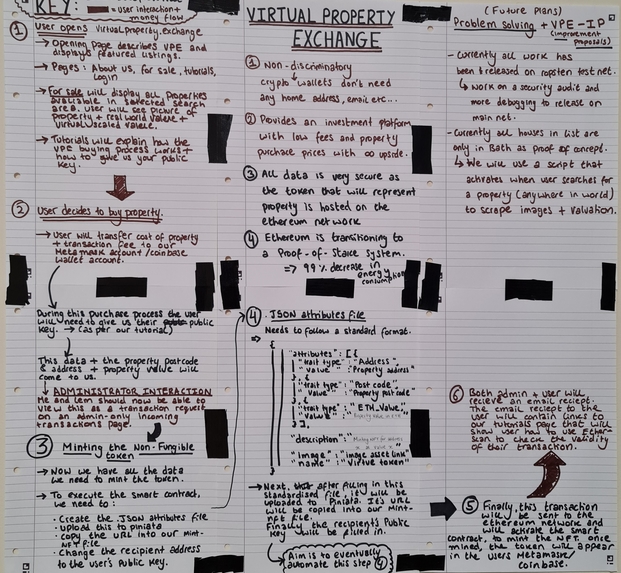 KEY:
= User interaction +
money flow
① User opens virtualproperty.exchange
→ Opening page describes VPE and
displays featured listings.
→ Pages: About us, for sale, tutorials,
Login
→ For sale will display all properties
available in selected search
area. User will see picture of
property + real world value +
virtual scaled value.
→ Tutorials will explain how the
VPE buying process works +
how to give us your public
key.
② User decides to buy property.
→ User will transfer cost of property
+ transaction fee to our
Metamask account/coinbase
wallet account.
During this purchase process the user
will need to give us their public
key. → (as per our tutorial)
This data + the property postcode
& address + property value will
come to us.
→ ADMINISTRATOR INTERACTION
Me and Lem should now be able to
view this as a transaction request
on an admin-only incoming
transactions page.
③ Minting the Non-Fungible
token
→ Now we have all the data
we need to mint the token.
→ To execute the smart contract,
we need to:
· Create the JSON attributes file
· upload this to piniata
· copy the URL into our Mint-
NFT file.
· Change the recipient address
to the user's Public key.
VIRTUAL PROPERTY
EXCHANGE
① Non-discriminatory
crypto wallets don't need
any home address, email etc...
② Provides an investment platform
with low fees and property
purchase prices with ∞ upside.
③ All data is very secure as
the token that will represent
property is hosted on the
ethereum network
④ Ethereum is transitioning to
a Proof-of-Stake system.
⇒ 99% decrease in
energy
consumption
④ JSON attributes file
Needs to follow a standard format.
⇒ {
"attributes": [{
"trait type": "Address",
"value": "Property address"
"trait type": "Post code",
"value": "Property post code"
"trait type": "ETH.Value",
"value":
}],
"description":
"image": "image asset link"
"name": "Virtue token"
}
→ Next, after filling in this
standardised file, it will be
uploaded to Piniata. It's URL
will be copied into our Mint-
nft file.
Finally the recipients Public
Key will be filled in.
Aim is to eventually
automate this step ④
(Future Plans)
Problem Solving + VPE-IP
(improvement
proposals)
- Currently all work has
been released on ropsten test net.
↳ Work on a security audit and
more debugging to release on
main net.
- Currently all houses in list are
only in Bath as proof of concept.
↳ We will use a script that
activates when user searches for
a property (anywhere in world)
to scrape images + valuation.
⑥ Both admin + user will
recieve an email reciept.
The email reciept to the
user will contain links to
our tutorials page that will
show user how to use Ether
Scan to check the validity
of their transaction.
⑤ Finally, this transaction
will be sent to the
ethereum network and
will activate the smart
contract, to mint the NFT. once
mined, the token will appear
in the users Metamask/
coinbase wallet.